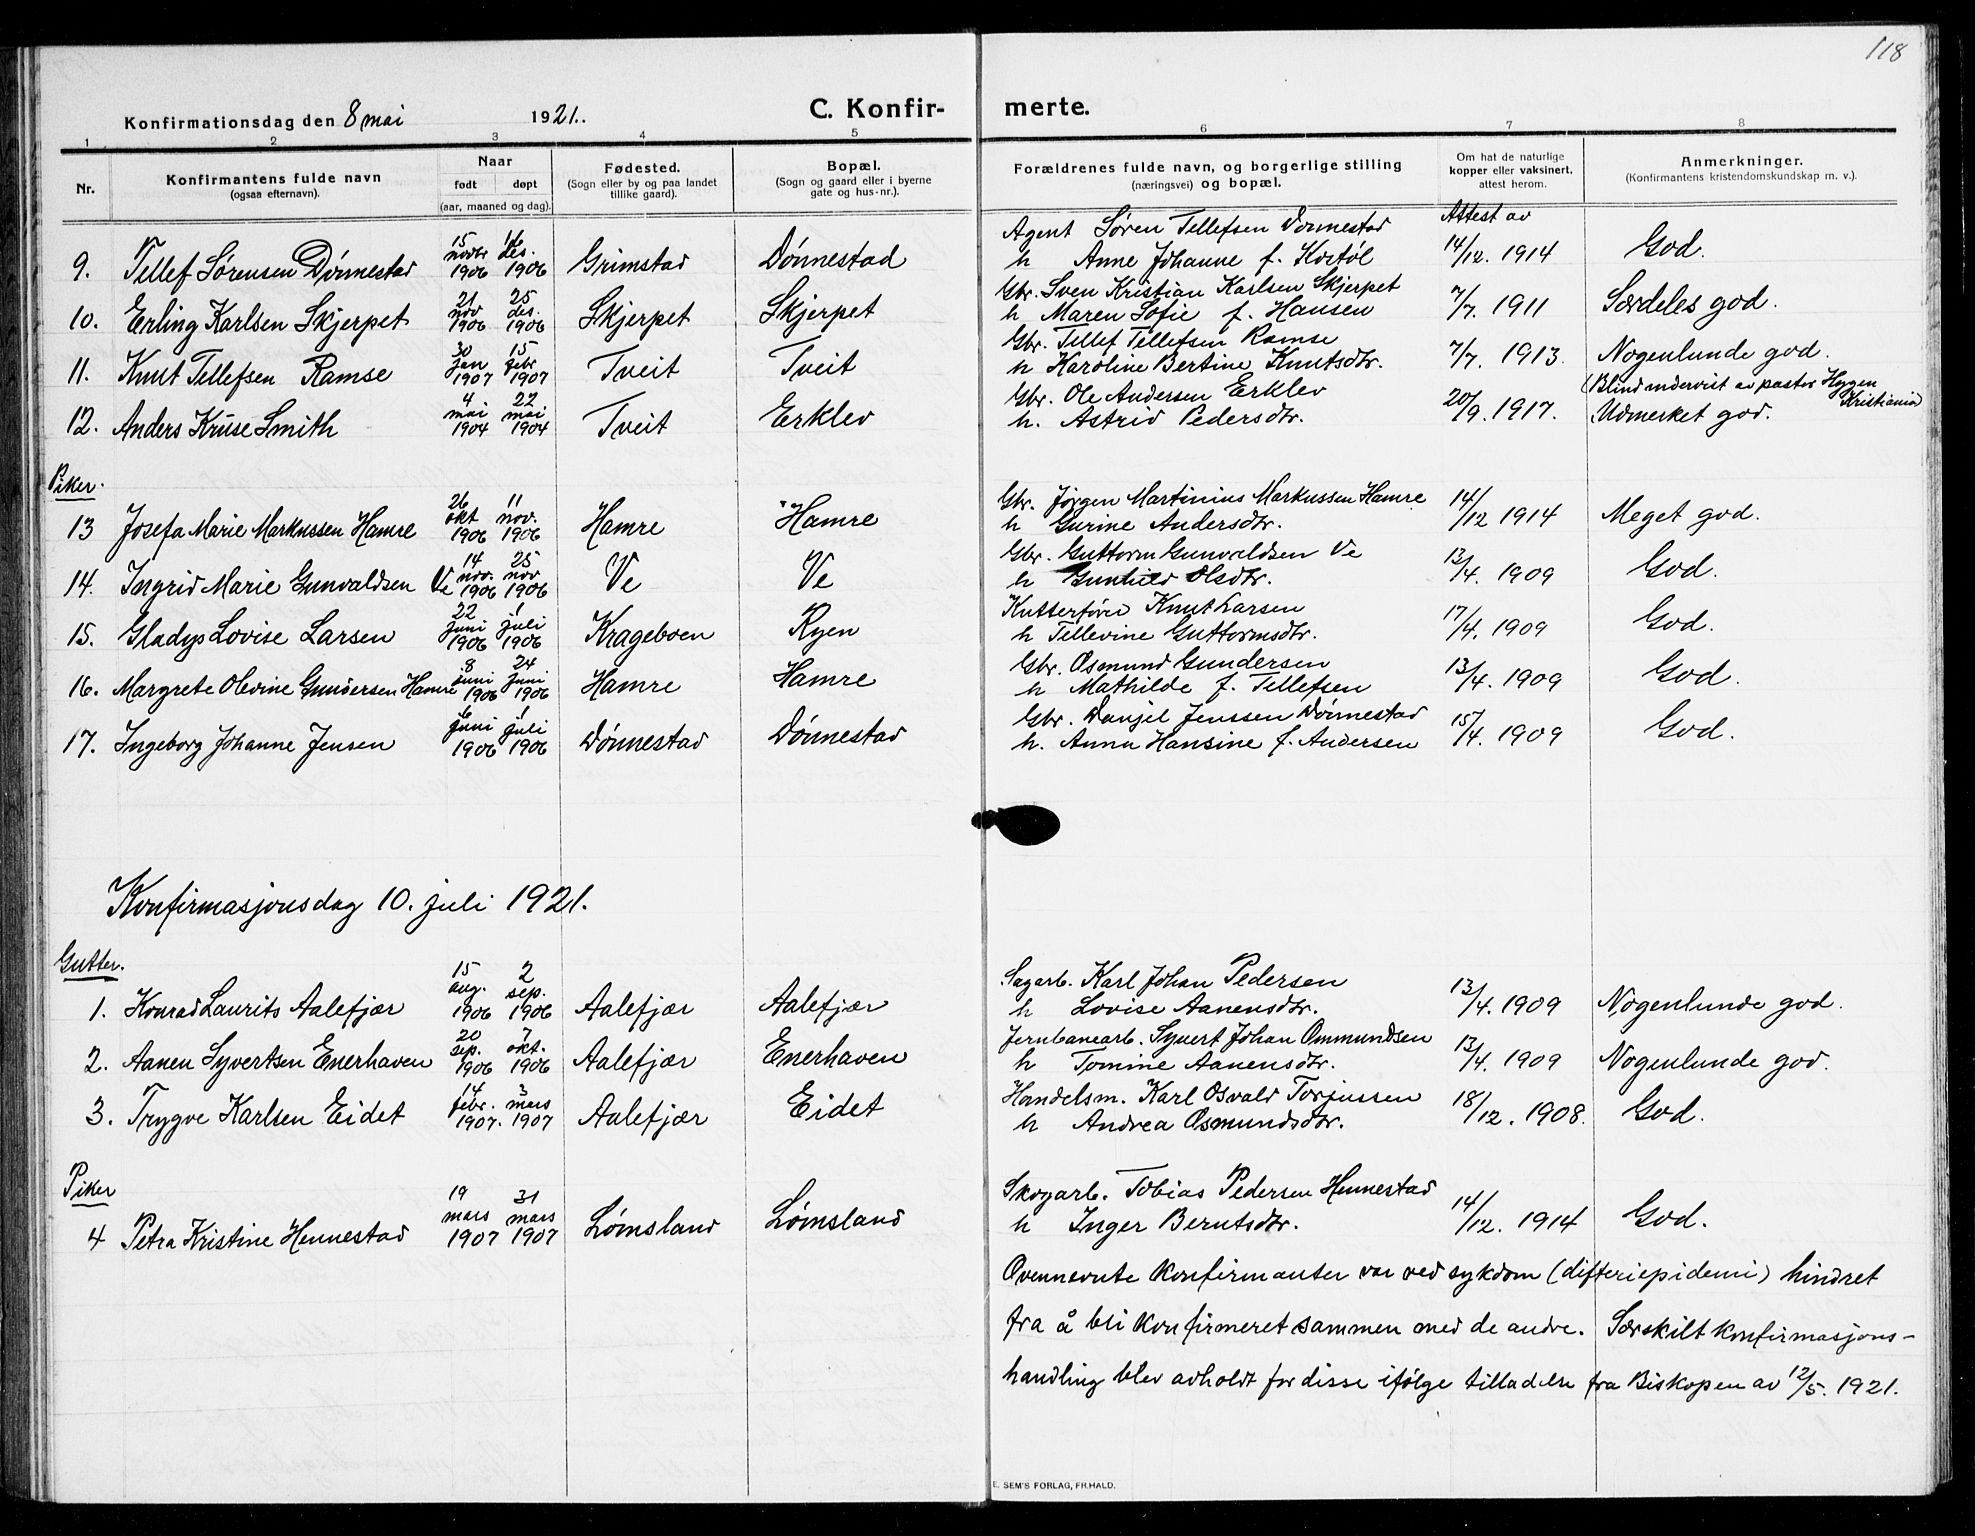 118
Konfirmationsdag den 8 mai 1921. C. Konfir- merte.
1 2 3 4 5 6 7 8
Nr. Konfirmantens fulde navn (ogsaa efternavn). Naar født døpt (aar, maaned og dag). Fødested. (Sogn eller by og paa landet tillike gaard). Bopæl. (Sogn og gaard eller i byerne gate og hus-nr.). Forældrenes fulde navn, og borgerlige stilling (næringsvei) og bopæl. Om hat de naturlige kopper eller vaksinert, attest herom. Anmerkninger. (Konfirmantens kristendomskundskap m. v.).
Agent Søren Tellefsen Dønnestad Attest av
9. Tellef Sørensen Dønnestad 15 novbr 1906 16 des. 1906 Grimstad Dønnestad h Anne Johanne f. Kostøl 14/12. 1914 God.
Gbr. Sven Kristian Karlsen Skjerpet
10. Erling Karlsen Skjerpet 21 nov 1906 25 des. 1906 Skjerpet Skjerpet h Maren Sofie f. Hansen 7/7. 1911 Særdeles god.
Gbr. Tellef Tellefsen Ramse
11. Knut Tellefsen Ramse 30 jan 1907 15 febr 1907 Tveit Tveit h Karoline Bertine Knutsdtr. 7/7. 1913. Nogenlunde god.
Gbr. Ole Andersen Erklev (Blindundervist av pastor Hygen Kristiania)
12. Anders Kruse Smith 4 mai 1904 22 mai 1904 Tveit Erklev h. Astrid Pedersdtr. 20/9. 1917. Udmerket god.
Piker.
Gbr. Jørgen Martinius Markussen Hamre
13 Josefa Marie Markussen Hamre 26 okt 1906 11 nov. 1906 Hamre Hamre h Gurine Andersdtr. 14/12 1914 Meget god.
Gbr. Guttorm Gunvaldsen Ve
14. Ingrid Marie Gunvaldsen Ve 14 nov. 1906 25 nov 1906 Ve Ve h Gunhild Olsdtr. 13/4. 1909 God.
Kutterfører Knut Larsen
15. Gladys Lovise Larsen 22 juni 1906 1 juli 1906 Krageboen Ryen h Tellevine Guttormsdtr. 17/4. 1909 God.
Gbr. Osmund Gundersen
16. Margrete Olevine Gundersen Hamre 8 juni 1906 24 juni 1906 Hamre Hamre h Mathilde f. Tellefsen 13/4. 1909 God.
Gbr. Danjel Jenssen Dønnestad
17. Ingeborg Johanne Jensen 6 juni 1906 1 juli 1906 Dønnestad Dønnestad h. Anna Hansine f. Andersen 15/4. 1909 God.
Konfirmasjonsdag 10. juli 1921.
Gutter.
Sagarb. Karl Johan Pedersen
1. Konrad Laurits Aalefjær 15 aug. 1906 2 sep. 1906 Aalefjær Aalefjær h Lovise Aanensdtr. 13/4. 1909 Nogenlunde god.
Jernbanearb. Syvert Johan Ommundsen
2. Aanen Syvertsen Enerhaven 20 sep. 1906 7 okt. 1906 Aalefjær Enerhaven h Tomine Aanensdtr. 13/4. 1909 Nogenlunde god.
Handelsm. Karl Osvald Torjussen
3. Trygve Karlsen Eidet 14 febr. 1907. 3 mars 1907 Aalefjær Eidet h Andrea Osmundsdtr. 18/12. 1908. God.
Piker
Skogarb. Tobias Pedersen Hennestad
4 Petra Kristine Hennestad 19 mars 1907 31 mars 1907 Lømsland Lømsland h Inger Berntsdtr. 14/12. 1914 God.
Ovennevnte konfirmanter var ved sykdom (difteriepidemi) hindret
fra å bli konfirmeret sammen med de andre. Særskilt konfirmasjons-
handling blev avholdt for disse ifølge tilladelse fra Biskopen av 12/5. 1921.
E. SEM'S FORLAG, FR.HALD.